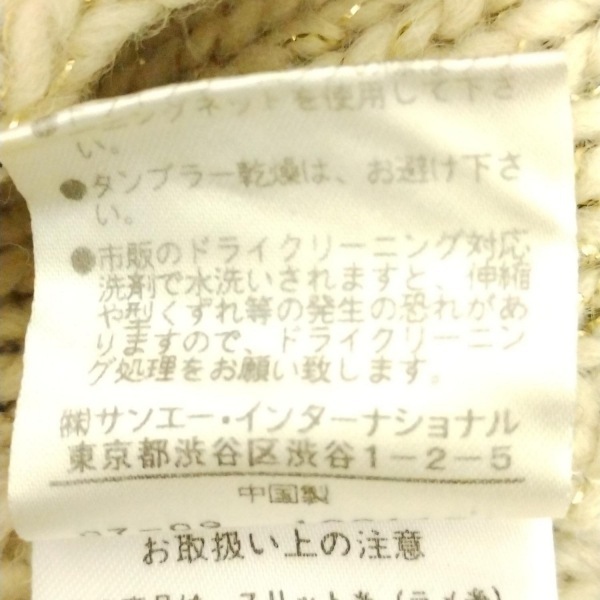 ニングネットを使用して下さ
い。
●タンブラー乾燥は、お避け下さ
い。
●市販のドライクリーニング対応
洗剤で水洗いされますと、伸縮
や型くずれ等の発生の恐れがあ
りますので、ドライクリーニン
グ処理をお願い致します。
㈱サンエー・インターナショナル
東京都渋谷区渋谷1-2-5
中国製
お取扱い上の注意
スリット糸(ラメ糸)